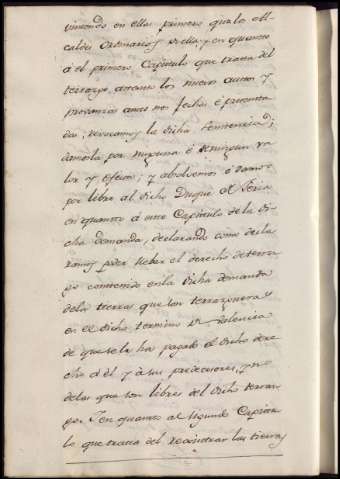 viniendo en ellas primero qua los Al-
caldes Ordinarios de ella, y en quanto
á el primero Capitulo que trata del
terrazgo, atento los nuevos autos y
provanzas ante nos fechas é presenta
das; revocamos la dicha sentencia;
damosla por ninguna é de ningun va
lor y efecto; y absolvemos é damos
por libre al dicho Duque de Feria
en quanto á este Capitulo de la di-
cha demanda, declarando como decla
ramos poder llebar el derecho de terraz
go contenido en la dicha demanda
de la tierras que son terrazgueras
en el dicho termino de Valencia
de que se le ha pagado el dicho dere
cho á él y á sus predecesores, y no
de las que son libres del dicho terraz
go. Y en quanto al segundo Capitu
lo que trata del rexistrar las tierras